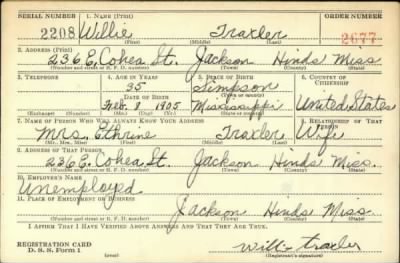 SERIAL NUMBER 1. NAME (Print) ORDER NUMBER
2208 Willie Traxler 2677
(First) (Middle) (Last)
2. ADDRESS (Print)
236 E. Cohea St. Jackson Hinds Miss.
(Number and street or R. F. D. number) (Town) (County) (State)
3. TELEPHONE 4. AGE IN YEARS 5. PLACE OF BIRTH 6. COUNTRY OF CITIZENSHIP
35 Simpson
DATE OF BIRTH (Town or county)
Feb. 8 1905 Mississippi United States
(Exchange) (Number) (Mo.) (Day) (Yr.) (State or country)
7. NAME OF PERSON WHO WILL ALWAYS KNOW YOUR ADDRESS 8. RELATIONSHIP OF THAT PERSON
Mrs. Ethrine Traxler Wife
(Mr., Mrs., Miss) (First) (Middle) (Last)
9. ADDRESS OF THAT PERSON
236 E. Cohea St. Jackson Hinds Miss.
(Number and street or R. F. D. number) (Town) (County) (State)
10. EMPLOYER'S NAME
Unemployed
11. PLACE OF EMPLOYMENT OR BUSINESS
Jackson Hinds Miss.
(Number and street or R. F. D. number) (Town) (County) (State)
I AFFIRM THAT I HAVE VERIFIED ABOVE ANSWERS AND THAT THEY ARE TRUE.
REGISTRATION CARD
D. S. S. Form 1 (over) Willie Traxler
(Registrant's signature)